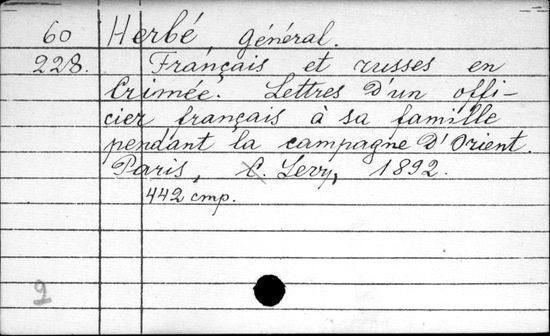 60 Herbé, général.
228. Français et russes en
Crimée. Lettres d'un offi-
cier français à sa famille
pendant la campagne d'Orient.
Paris, C. Levy, 1892.
442 стр.
2